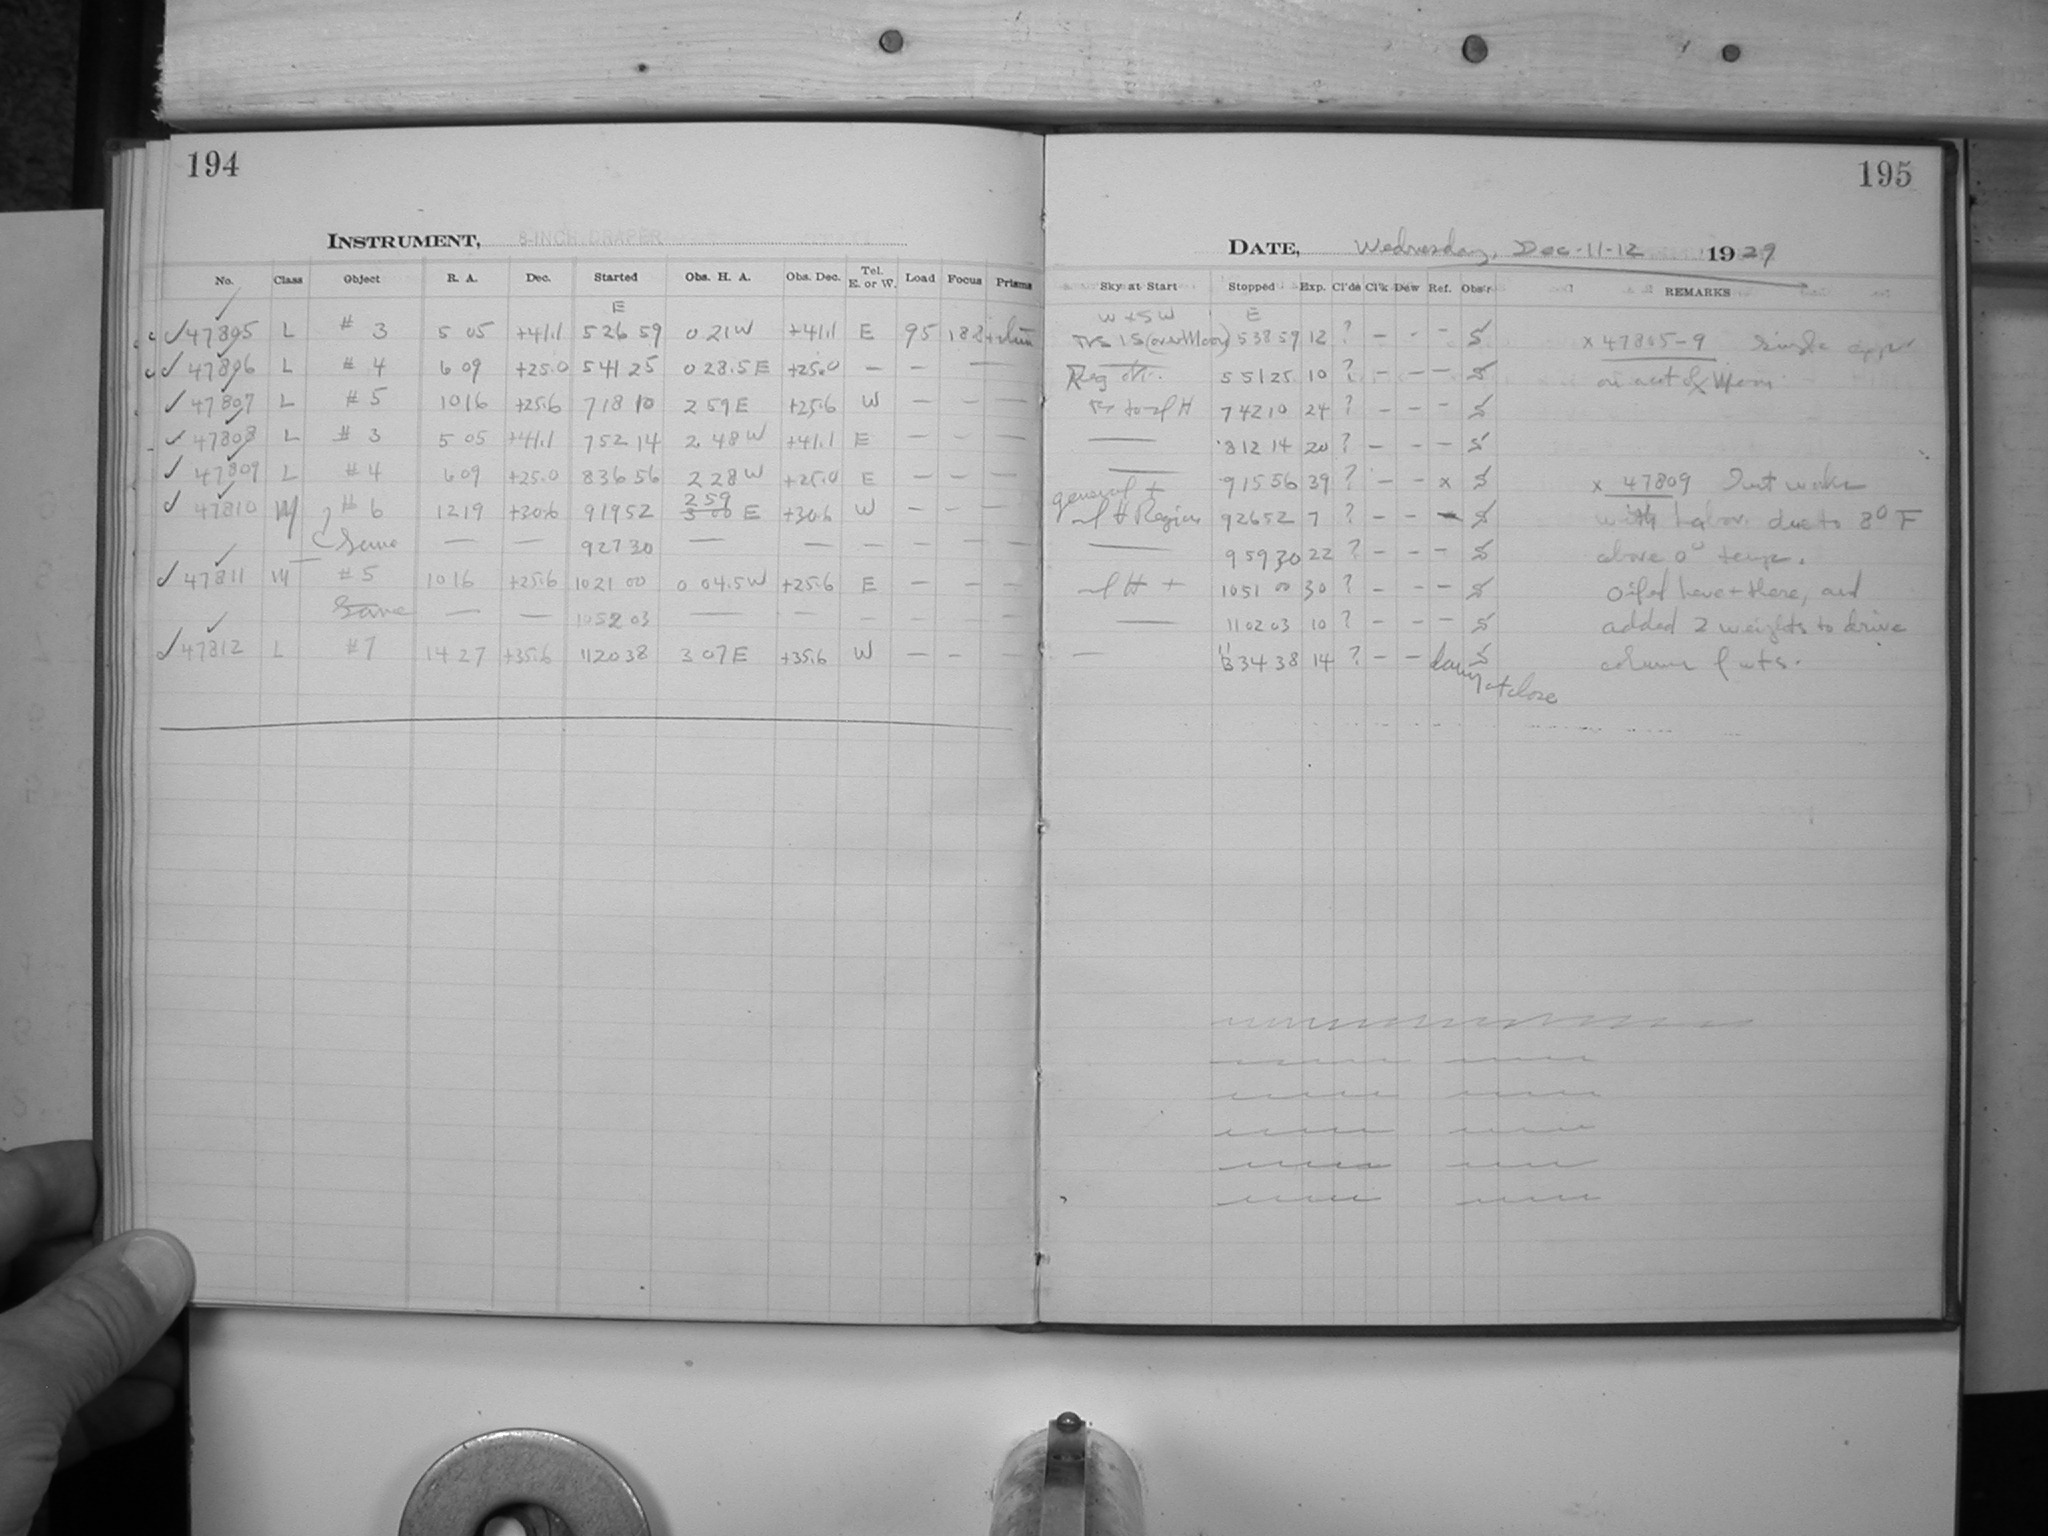 194
INSTRUMENT, 8-INCH DRAPER
No. Class Object R. A. Dec. Started Obs. H. A. Obs. Dec. Tel. E. or W. Load Focus Prisms
E
47805 L # 3 5 05 +41.1 5 26 59 0 21 W +41.1 E 95 18.8
47806 L # 4 6 09 +25.0 5 41 25 0 28.5 E +25.0 — — —
47807 L # 5 10 16 +25.6 7 18 10 2 59 E +25.6 W — — —
47808 L # 3 5 05 +41.1 7 52 14 2 48 W +41.1 E — — —
47809 L # 4 6 09 +25.0 8 36 56 2 28 W +25.0 E — — —
2 59
47810 M # 6 12 19 +30.6 9 19 52 3 00 E +30.6 W — — —
Same — — 9 27 30 — — — — — —
47811 M # 5 10 16 +25.6 10 21 00 0 04.5 W +25.6 E — — —
Same — — 10 52 03 — — — — — —
47812 L # 7 14 27 +35.6 11 20 38 3 07 E +35.6 W — — —
195
DATE, Wednesday, Dec. 11-12 1929
Sky at Start Stopped Exp. Cl'ds Cl'k Dew Ref. Obs'r. REMARKS
W + SW E
(over Moon) 5 38 59 12 ? — - — S x 47805-9 Single
5 51 25 10 ? — — — S on acct of Moon.
H 7 42 10 24 ? — — — S
— 8 12 14 20 ? — — — S
— 9 15 56 39 ? — — x S x 47809
general +
H Region 9 26 52 7 ? — — — S with due to 8° F
— 9 59 30 22 ? — — — S above 0° temp.
H + 10 51 00 30 ? — — — S oiled here + there, and
— 11 02 03 10 ? — — — S added 2 weights to drive
— 11 34 38 14 ? — — S column
at close